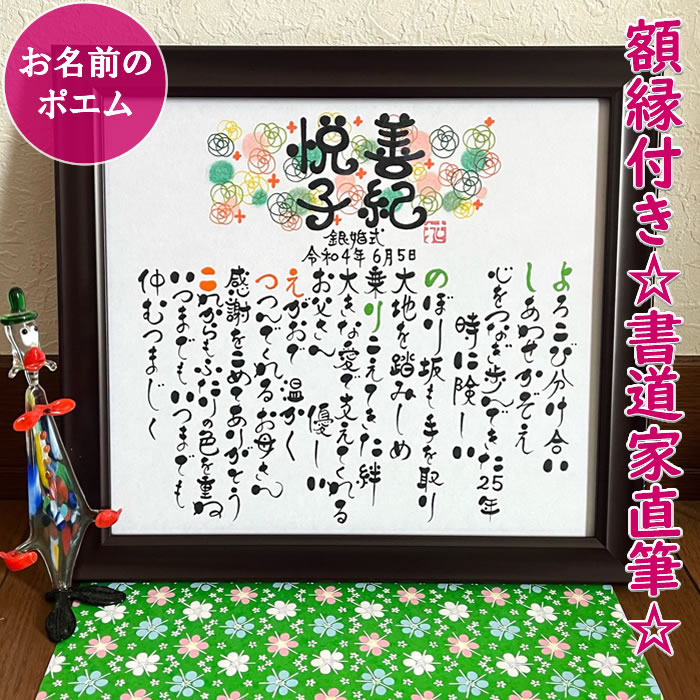 お名前の
ポエム
額縁付き☆書道家直筆☆
善紀
悦子
銀婚式
令和4年6月5日
よろこび分け合い
しあわせかぞえ
心をつなぎ歩んできた25年
時に険しい
のぼり坂も手を取り
大地を踏みしめ
乗りこえてきた絆
大きな愛で支えてくれる
お父さん 優しい
えがおで 温かく
つつんでくれるお母さん
感謝をこめてありがとう
これからもふたりの色を重ね
いつまでもいつまでも
仲むつまじく